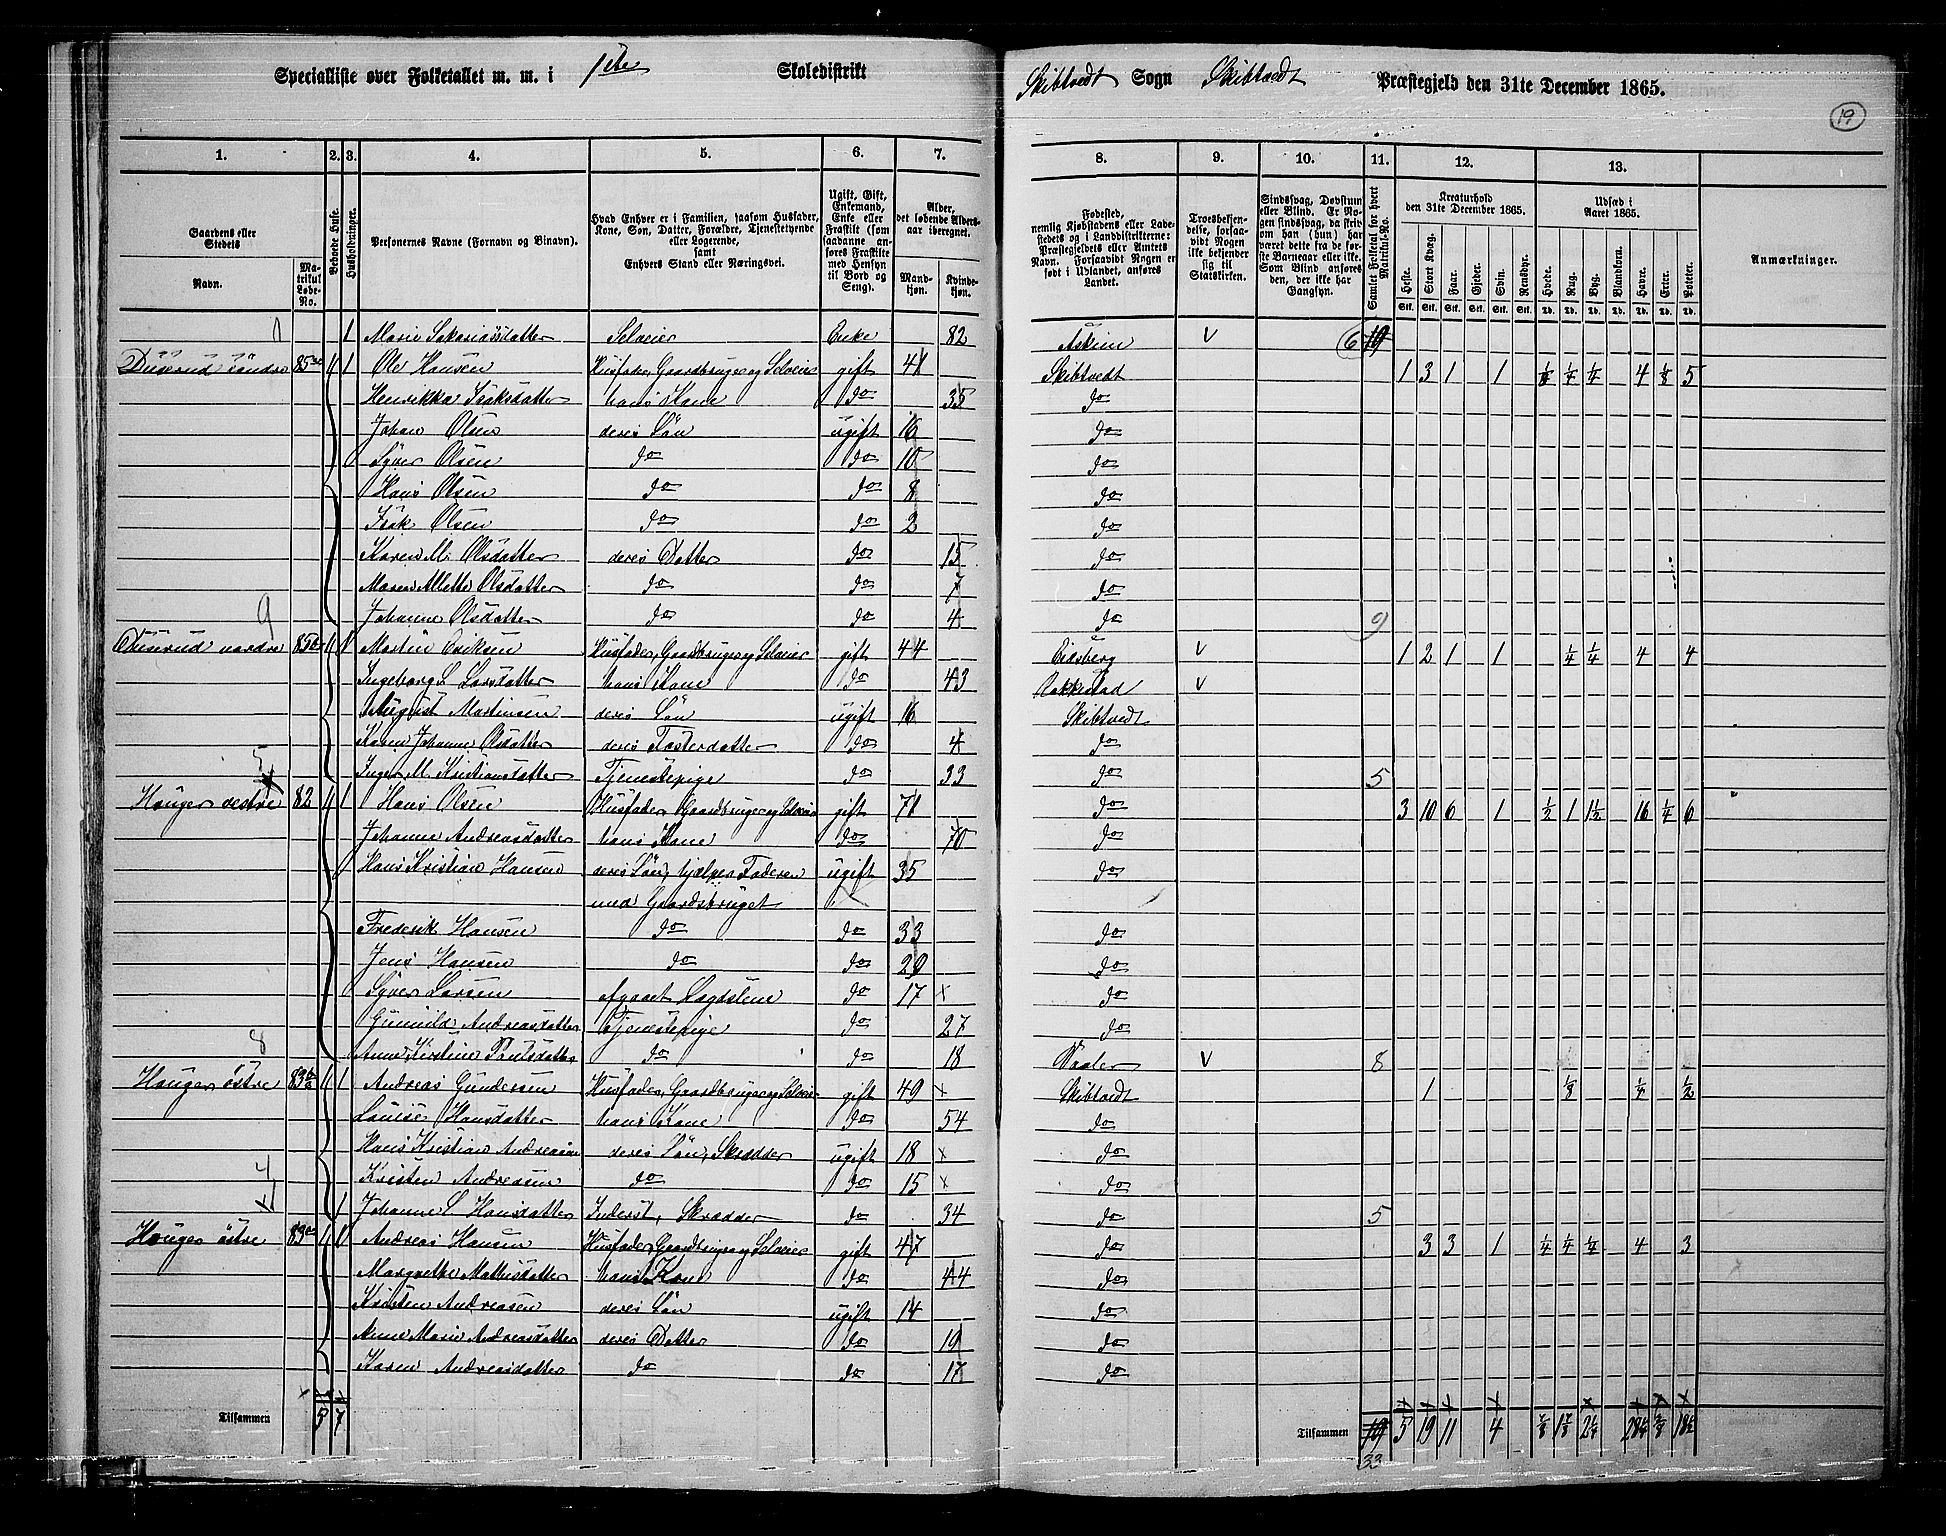 Specialliste over Folketallet m. m. i 1ste Skoledistrikt Skibtvedt Sogn Skibtvedt Præstegjeld den 31te December 1865.
19
1. 2. 3. 4. 5. 6. 7. 8. 9. 10. 11. 12. 13.
Gaardens eller Stedets
Navn.
Matrikul Løbe-No.
Beboede Huse.
Husholdninger.
Personernes Navne (Fornavn og Binavn).
Hvad Enhver er i Familien, saasom Husfader, Kone, Søn, Datter, Forældre, Tjenestetyende eller Logerende, samt Enhvers Stand eller Næringsvei.
Ugift, Gift, Enkemand, Enke eller Fraskilt (som saadanne anføres Fraskilte med Hensyn til Bord og Seng).
Alder, det løbende Aldersaar iberegnet.
Mandkjøn. Kvindekjøn.
Fødested, nemlig Kjøbstadens eller Ladestedets og i Landdistrikterne: Præstegjeldets eller Amtets Navn. Forsaavidt Nogen er født i Udlandet, anføres Landet.
Troesbekjendelse, forsaavidt Nogen ikke bekjender sig til Statskirken.
Sindssvag, Døvstum eller Blind. Er Nogen sindssvag, da skrives om han (hun) har været dette fra de første Barneaar eller ikke. Som Blind anføres den, der ikke har Gangsyn.
Samlet Folketal for hvert Matrikul-No.
Kreaturhold den 31te December 1865.
Heste. Stort Kvæg. Faar. Gjeder. Sviin. Rensdyr.
Udsæd i Aaret 1865.
Hvede. Rug. Byg. Blandkorn. Havre. Erter. Poteter.
Anmærkninger.
1 Marie Sakariasdatter Selveier Enke 82 Askim V 6
Duserud søndre 85 1 1 Ole Hansen Husfader, Gaardbruger og Selveier gift 41 Skibtvedt 1 3 1 1 1/8 1/4 1/4 4 1/8 5
Henrikka Isaksdatter hans Kone do 35 do
Johan Olsen deres Søn ugift 16 do
Syver Olsen do do 10 do
Hans Olsen do do 8 do
Isak Olsen do do 2 do
Karen M. Olsdatter deres Datter do 15 do
Maren Alette Olsdatter do do 7 do
9 Johanne Olsdatter do do 4 do 9
Duserud nordre 85b 1 1 Martin Eriksen Husfader, Gaardbruger og Selveier gift 44 Eidsberg V 1 2 1 1 1/4 1/4 4 4
Ingeborg L. Larsdatter hans Kone do 43 Rakkestad V
August Martinsen deres Søn ugift 16 Skibtvedt
Karen Johanne Olsdatter deres Fosterdatter do 4 do
5 Inger M. Kristiansdatter Tjenestepige do 33 do 5
Hauger vestre 82 1 1 Hans Olsen Husfader, Gaardbruger og Selveier gift 71 do 3 10 6 1 1/2 1 1 1/2 16 1/4 6
Johanne Andreasdatter hans Kone do 70 do
Hans Kristian Hansen deres Søn, hjælper Faderen ugift 35 do
med Gaardsbruget
Frederik Hansen do do 33 do
Jens Hansen do do 20 do
Syver Larsen afgaaet Lægdslem do 17 x do
Gunnild Andreasdatter Tjenestepige do 27 do
8 Anne Kirstine Poulsdatter do do 18 Vaaler V 8
Hauger østre 83 1 1 Andreas Gundersen Husfader, Gaardbruger og Selveier gift 49 x Skibtvedt 1 1/8 1/2
Louise Hansdatter hans Kone do 54 do
Hans Kristian Andreasen deres Søn, Skrædder ugift 18 x do
4 Kristen Andreasen do do 15 x do
1 Johanne L. Hansdatter Inderst, Skrædder do 34 do 5
Hauger østre 83 1 1 Andreas Hansen Husfader, Gaardbruger og Selveier gift 47 do 3 3 1 1/4 1/4 1/4 4 3
Margrethe Mathisdatter hans Kone do 44 do
Kristen Andreasen deres Søn ugift 14 do
Anne Marie Andreasdatter deres Datter do 19 do
Karen Andreasdatter do do 17 do
Tilsammen 5 7 Tilsammen 5 19 11 4
33